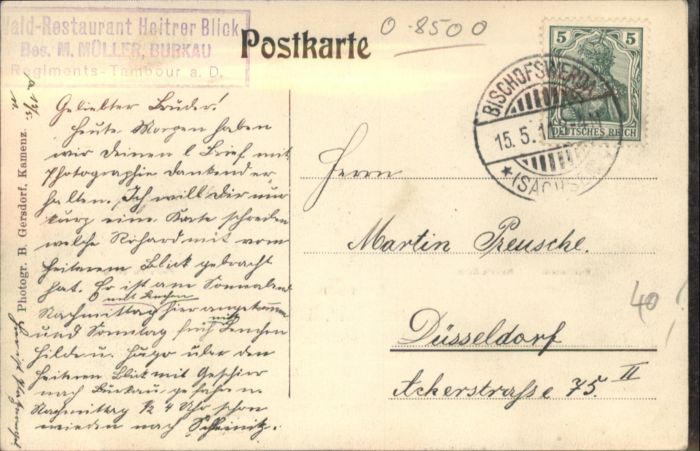 Wald-Restaurant Heitrer Blick
Bes. M. MÜLLER, BURKAU
Regiments-Tambour a. D.
Postkarte
0-8500
5 5
DEUTSCHES REICH
BISCHOFSWERDA
15. 5. 1
* (SACHSEN)
Geliebter Bruder!
Heute Morgen haben
wir Deinen l Brief mit
Photographie dankend er-
halten. Ich will Dir nur
kurz eine Karte schreiben
welche Richard mit vom
heiteren Blick gebracht
hat. Er ist am Sonnabend
Nachmittag hier angekommen
und Sonntag früh mit
Hilde u. Hugo über den
Heiteren Blick mit Geschirr
nach Burkau gefahren.
Nachmittag ½ 4 Uhr schon
wieden nach
Herrn
Martin Preusche.
Düsseldorf
Ackerstraße 75. II
40
Photogr. B. Gersdorf, Kamenz.